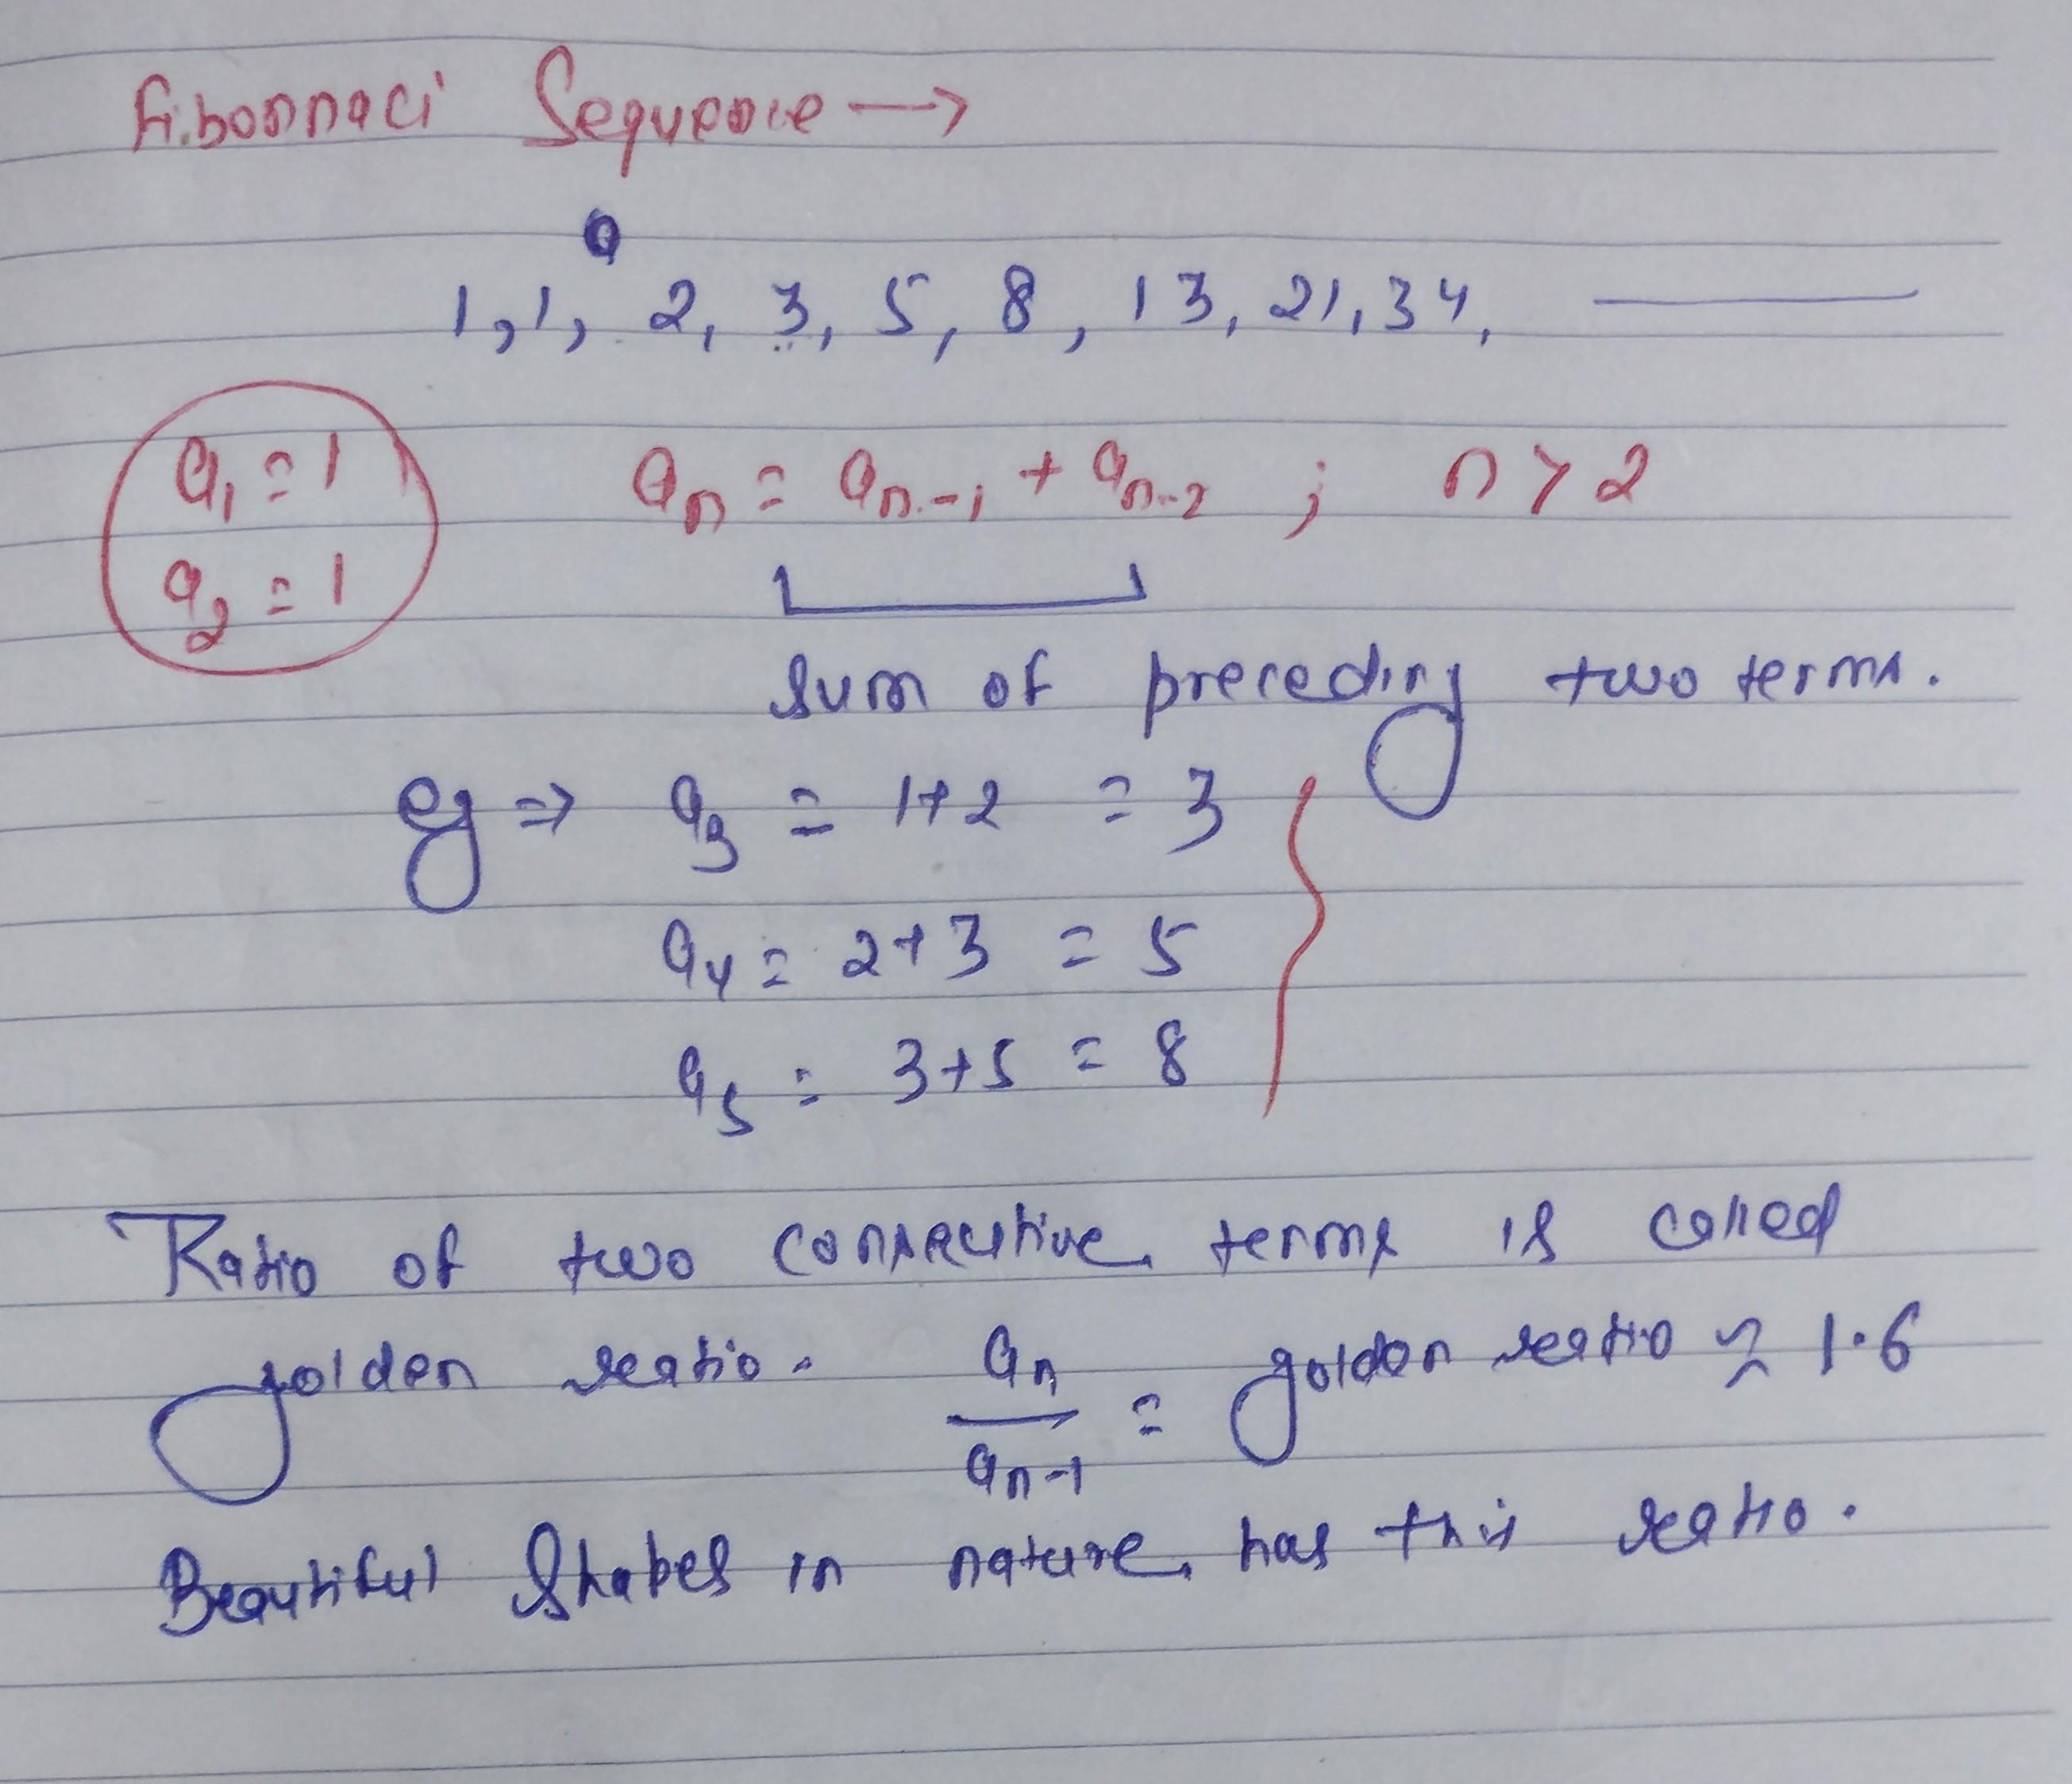 Fibonnaci Sequence →
1, 1, 2, 3, 5, 8, 13, 21, 34, ———
a₁ = 1
a₂ = 1
aₙ = aₙ₋₁ + aₙ₋₂ ; n > 2
sum of preceding two terms.
eg ⇒ a₃ = 1+2 = 3
a₄ = 2+3 = 5
a₅ = 3+5 = 8
Ratio of two consecutive terms is called
golden ratio. aₙ/aₙ₋₁ = golden ratio ≈ 1.6
Beautiful Shapes in nature has this ratio.